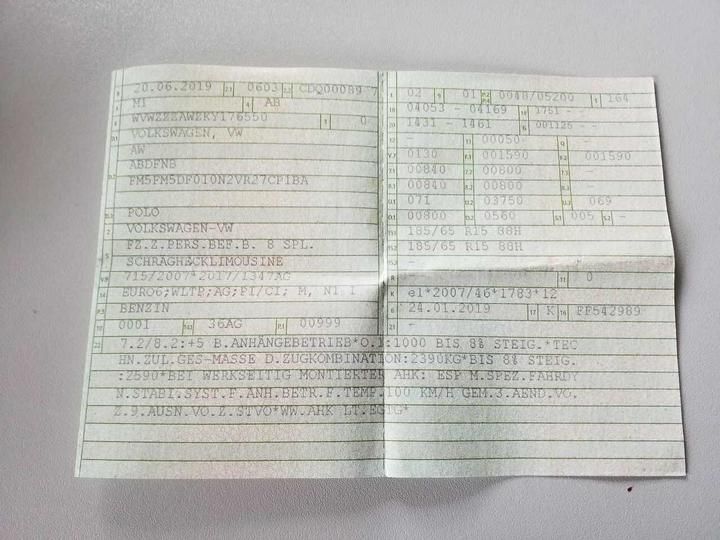 20.06.2019 2.1 0603 2.2 CDQ00089 7
M1 4 AB
WVWZZZAWZKY176550 3 0
VOLKSWAGEN, VW
AW
ABDFNB
FM5FM5DF010N2VR27CPIBA
D.3 POLO
2 VOLKSWAGEN-VW
5 FZ.Z.PERS.BEF.B. 8 SPL.
SCHRAGHECKLIMOUSINE
V.9 715/2007*2017/1347AG
14 EURO6;WLTP;AG;PI/CI; M, N1 I
P.3 BENZIN
10 0001 14.1 36AG P.1 00999
L 02 9 01 P.2 P.4 0048/05200 T 164
18 04053 - 04169 19 1751 -
20 1431 - 1461 G 001125 - -
12 - 13 00050 Q -
V.7 0130 F.1 001590 F.2 001590
7.1 00840 7.2 00800 7.3 -
8.1 00840 8.2 00800 8.3 -
U.1 071 U.2 03750 U.3 069
O.1 00800 O.2 0560 S.1 005 S.2 -
15.1 185/65 R15 88H
15.2 185/65 R15 88H
15.3 -
R - 11 0
K e1*2007/46*1783*12
6 24.01.2019 17 K 16 FF542989
21 -
22 7.2/8.2:+5 B.ANHÄNGEBETRIEB*O.1:1000 BIS 8% STEIG.*TEC
HN.ZUL.GES-MASSE D.ZUGKOMBINATION:2390KG*BIS 8% STEIG.
:2590*BEI WERKSEITIG MONTIERTER AHK: ESP M.SPEZ.FAHRDY
N.STABI.SYST.F.ANH.BETR.F.TEMP.100 KM/H GEM.3.AEND.VO.
Z.9.AUSN.VO.Z.STVO*WW.AHK LT.EGTG*